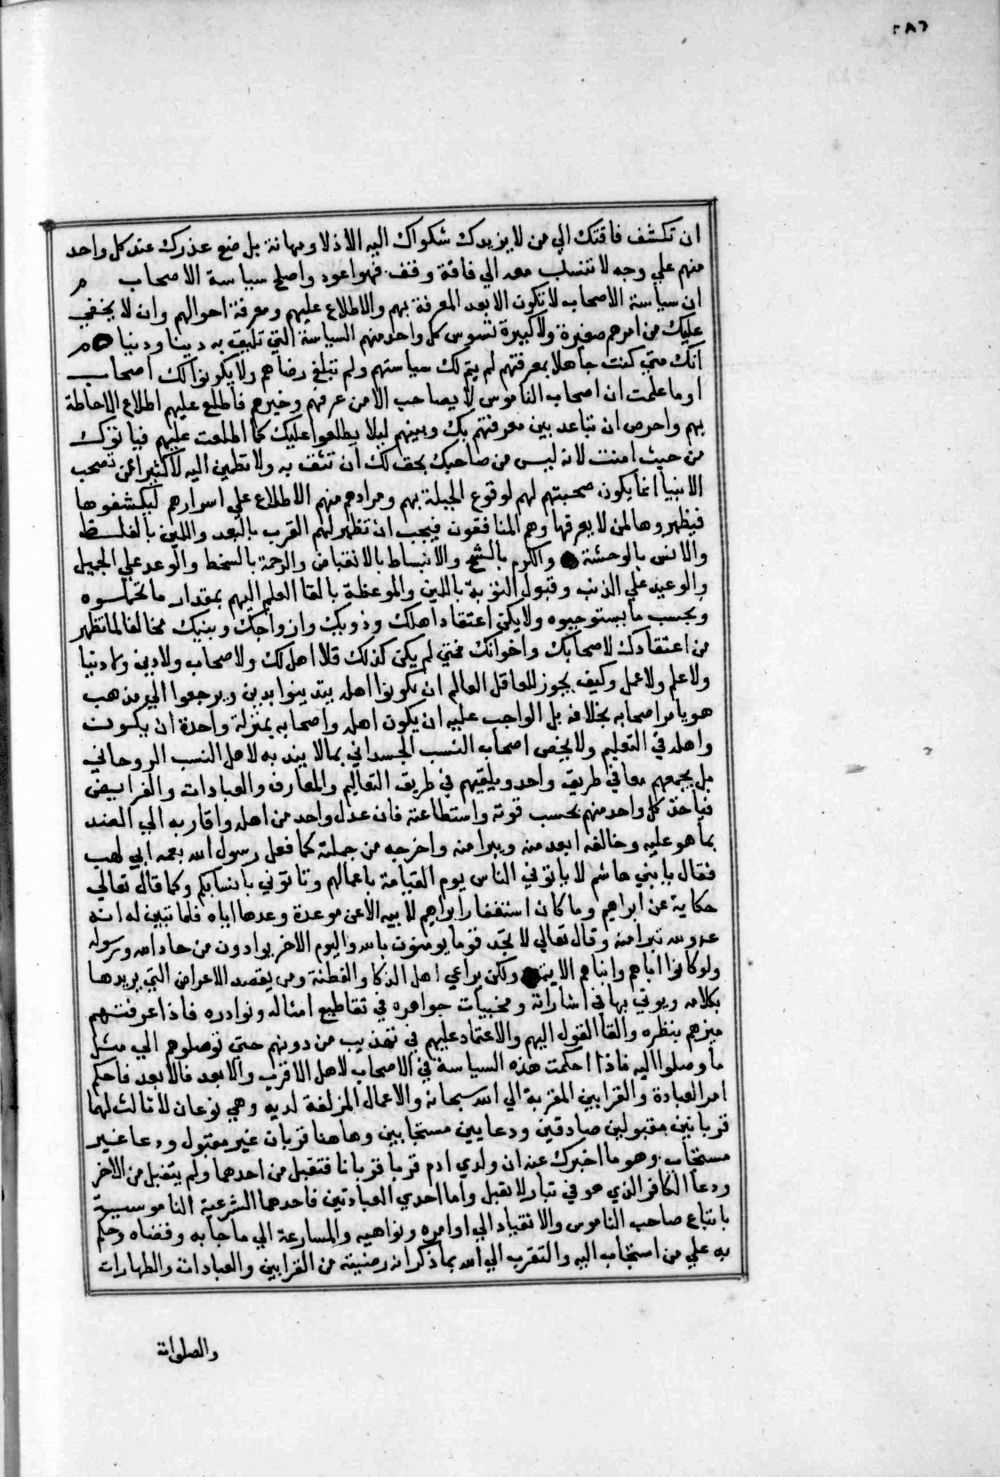 ٢٨٦
ان تكشف فاقتك الي من لا يزيدك شكواك اليه الا ذلا ومهانة بل ضع عذرك عند كل واحد
منهم علي وجه لا تنسب معه الي فاقة وقف فهو اعود واصلح سياسة الاصحاب م
ان سياسة الاصحاب لا تكون الا بعد المعرفة بهم والاطلاع عليهم ومعرفة احوالهم وان لا يخفي
عليك من امرهم صغيرة ولا كبيرة تسوس كل واحد منهم السياسة التي تليق به دينا ودنيا م
انك متي كنت جاهلا بمعرفتهم لم يتم لك سياستهم ولم تبلغ رضاهم ولا يكونوا لك اصحاب
اوما علمت ان اصحاب الناموس لا يصاحب الا من عرفهم وخبرهم فاطلع عليهم اطلاع الاحاطة
بهم واحرص ان تباعد بين معرفتهم بك وبينهم ليلا يطلعوا عليك كما اطلعت عليهم فياتوك
من حيث امنت لانه ليس من صاحبك بحق لك ان تثق به ولا تطمين اليه لا كثيرا ممن تصحب
الانبيا انما يكون صحبتهم لهم لوقوع الجبلة بهم ومرادهم منهم الاطلاع علي اسرارهم ليكشفوها
فيظهروها لمن لا يعرفها وهم المنافقون فيجب ان تظهر لهم القرب بالبعد واللين بالغلظ
والانس بالوحشة والكرم بالشح والانبساط بالانقباض والرحمة بالسخط والوعد علي الجميل
والوعيد علي الذنب وقبول التوبة باللين والموعظة بالقا العلم اليهم بمقدار ما
وبحسب ما يستوجبوه ولا يكن اعتقاد اهلك وذويك وازواجك وبنيك مخالفا لما تظهر
من اعتقادك لاصحابك واخوانك فمتي لم يكن كذلك فلا اهل لك ولا اصحاب ولا دين ولا دنيا
ولا علم ولا عمل وكيف يجوز للعاقل العالم ان يكونوا اهله يتدينوا بدين ويرجعوا الي مذهب
هو يامر اصحابه بخلافه بل الواجب عليه ان يكون اهله واصحابه بمنزلة واحدة ان يكون
واهله في التعليم ولا يخص اصحاب النسب الجسداني بما لا يبديه لاهل النسب الروحاني
بل يجمعهم معا في طريق واحد ويلقيهم في طريق التعاليم والمعارف والعبادات والفرايض
فياخذ كل واحد منهم بحسب قوته واستطاعته فان عدل واحد من اهله واقاربه الي الضد
بما هو عليه وخالفه ابعد منه ويبرا منه واخرجه من جملته كما فعل رسول الله بعمه ابي لهب
فقال يا بني هاشم لا ياتوني الناس يوم القيامة باعمالهم وتاتوني بانسابكم وكما قال تعالي
حكاية عن ابراهيم وما كان استغفار ابراهيم لابيه الا عن موعدة وعدها اياه فلما تبين له انه
عدو لله تبرا منه وقال تعالي لا تجد قوما يومنون بالله واليوم الاخر يوادون من حاد الله ورسوله
ولو كانوا اباهم وابناهم الاية ولكن يراعي اهل الذكا والفطنة ومن يقصد الاعراض التي يريدها
بكلامه ويوتي بها في اشاراته ومخبيات جواهره في تقاطيع امثاله ونوادره فاذا عرفتهم
ميزهم بنظره والقا القول اليهم والاعتماد عليهم في تهذيب من دونهم حتي توصلوهم الي مثل
ما وصلوا اليه فاذا احكمت هذه السياسة في الاصحاب لاهل الاقرب والابعد فالابعد فاحكم
امر العبادة والقرابين المقربة الي الله سبحانه والاعمال المزلفة لديه وهي نوعان لا ثالث لهما
قربانين مقبولين صادقين ودعايين مستجابين وهاهنا قربان غير مقبول ودعا غير
مستجاب وهو ما اخبرك عنه ان ولدي ادم قربا قربانا فتقبل من احدهما ولم يتقبل من الاخر
ودعا الكافر الذي هو في تبار لا يقبل واما احدي العبادتين فاحدهما الشرعية الناموسية
باتباع صاحب الناموس والانقياد الي اوامره ونواهيه والمسارعة الي ما جا به وقضاه وحكم
به علي من استجاب اليه والتقرب الي الله بما ذكر انه رضيته من القرابين والعبادات والطهارات
والصلوات